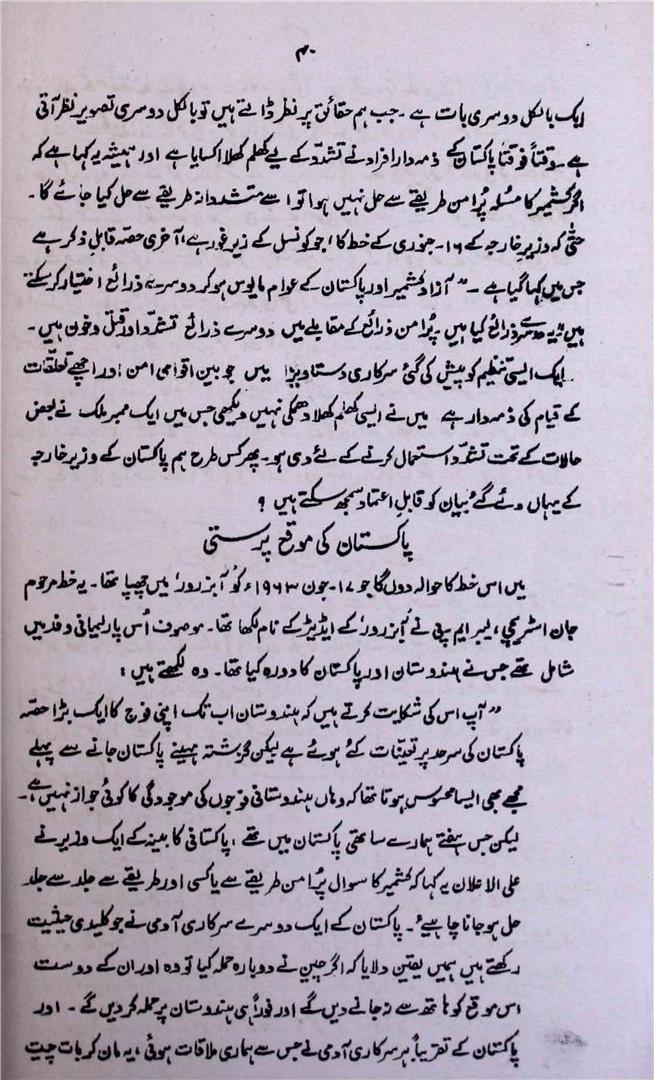 ۴۰
ایک بالکل دوسری بات ہے ۔ جب ہم حقائق پر نظر ڈالتے ہیں تو بالکل دوسری تصویر نظر آتی
ہے ۔ وقتاً فوقتاً پاکستان کے ذمہ دار افراد نے تشدّد کے لیے کھلم کھلا اکسایا ہے اور ہمیشہ یہ کہا ہے کہ
اگر کشمیر کا مسئلہ پُرامن طریقے سے حل نہیں ہوا تو اسے متشددانہ طریقے سے حل کیا جائے گا ۔
حتٰی کہ وزیر خارجہ کے ۱۶۔ جنوری کے خط کا (جو کونسل کے زیر غور ہے) آخری حصّہ قابلِ ذکر ہے
جس میں کہا گیا ہے ۔ "آزاد کشمیر اور پاکستان کے عوام مایوس ہوکر دوسرے ذرائع اختیار کرسکتے
ہیں" یہ دوسرے ذرائع کیا ہیں ۔ پُرامن ذرائع کے مقابلے میں دوسرے ذرائع تشدّد اور قتل و خون ہیں ۔
ایک ایسی تنظیم کو پیش کی گئی سرکاری دستاویز میں جو بین اقوامی امن اور اچھے تعلّقات
کے قیام کی ذمہ دار ہے میں نے ایسی کھلم کھلا دھمکی نہیں دیکھی جس میں ایک ممبر ملک نے بعض
حالات کے تحت تشدّد استعمال کرنے کے لئے دی ہو۔ پھر کس طرح ہم پاکستان کے وزیر خارجہ
کے یہاں دئے گئے بیان کو قابلِ اعتماد سمجھ سکتے ہیں ؟
پاکستان کی موقع پرستی
میں اس خط کا حوالہ دوں گا جو ۱۷۔ جون ۱۹۶۳ء کو 'آبزرور' میں چھپا تھا ۔ یہ خط مرحوم
جان اسٹریچی، لیبر ایم پی نے 'آبزرور' کے ایڈیٹر کے نام لکھا تھا ۔ موصوف اُس پارلیمانی وفد میں
شامل تھے جس نے ہندوستان اور پاکستان کا دورہ کیا تھا ۔ وہ لکھتے ہیں :
"آپ اس کی شکایت کرتے ہیں کہ ہندوستان اب تک اپنی فوج کا ایک بڑا حصّہ
پاکستان کی سرحد پر تعینات کئے ہوئے ہے لیکن گزشتہ مہینے پاکستان جانے سے پہلے
مجھے بھی ایسا محسوس ہوتا تھا کہ وہاں ہندوستانی فوجوں کی موجودگی کا کوئی جواز نہیں ہے ۔
لیکن جس ہفتے ہمارے ساتھی پاکستان میں تھے ، پاکستانی کابینہ کے ایک وزیر نے
علی الاعلان یہ کہا کہ کشمیر کا سوال پُرامن طریقے سے یا کسی اور طریقے سے جلد سے جلد
حل ہوجانا چاہیے ۔ پاکستان کے ایک دوسرے سرکاری آدمی نے جو کلیدی حیثیت
رکھتے ہیں ہمیں یقین دلایا کہ اگر چین نے دوبارہ حملہ کیا تو وہ اور ان کے دوست
اس موقع کو ہاتھ سے نہ جانے دیں گے اور فوراً ہی ہندوستان پر حملہ کردیں گے ۔ اور
پاکستان کے تقریباً ہر سرکاری آدمی نے جس سے ہماری ملاقات ہوئی ، یہ مان کر بات چیت